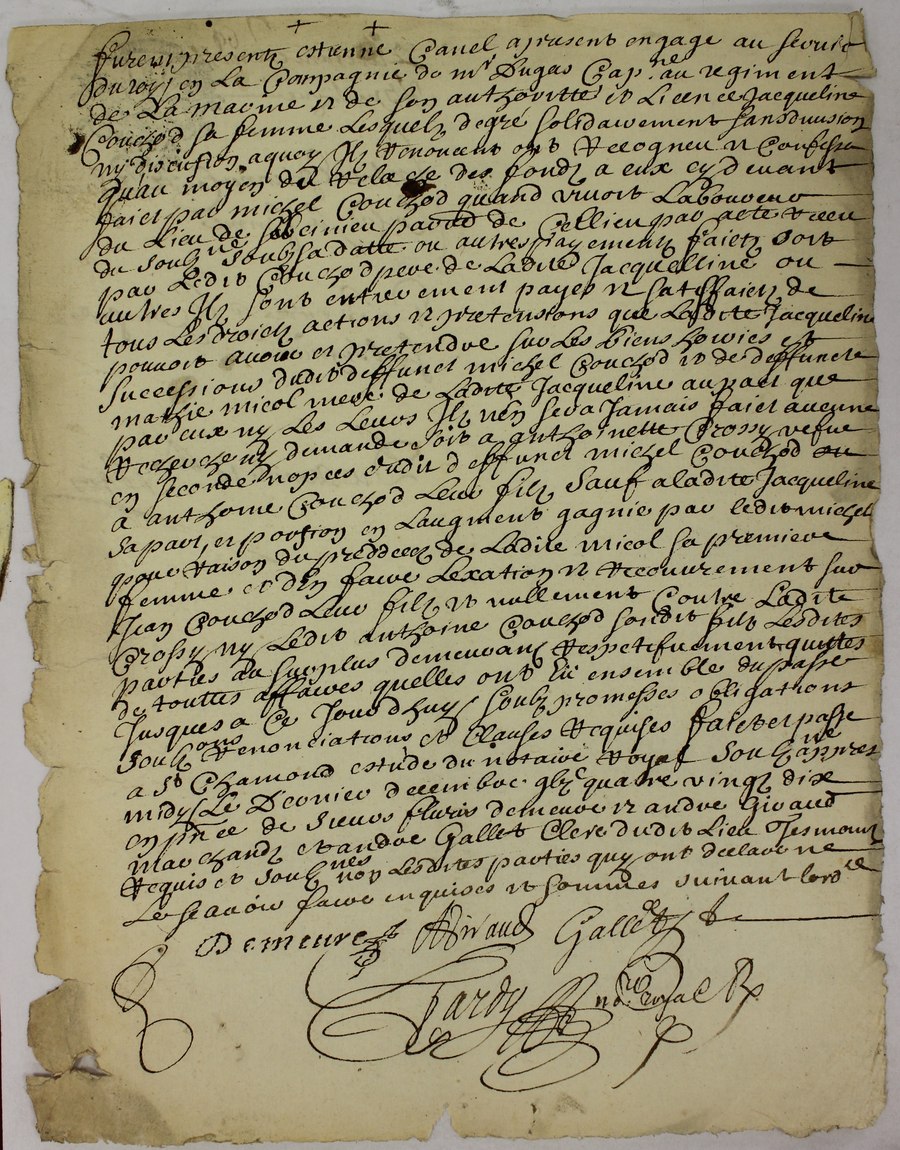 furent presentz estienne Canel apresent engage au service
du roy en La Compagnie de mr Dugas Cap.ne au regiment
de La marine et de son authoritte et Licence Jacqueline
Couchod sa femme Lesquelz degre solidairement sans division
ny discution aquoy Ilz renoncent ont recogneu et Confesse
quau moyen du relaxe des fondz a eux cy devant
faict par michel Couchod quand vivoit Laboureur
du Lieu de de Cellieu par acte receu
du soubz.ne soubz sa datte ou autres payementz faictz soit
par Ledit Couchod pere de Ladite Jacquelline ou
autres Ilz sont entierement payes et satisfaictz de
tous Les droictz actions et pretensions que Ladite Jacqueline
pouvoit avoir et pretendre sur Les biens hoiries et
successions dudit deffunct michel Couchod et de deffuncte
mathie micol mere de Ladite Jacqueline au
par eux ny Les Leurs Ilz nen sera Jamais faict aucune
recherche ny demande soit a anthoinette Crossy vefve
en seconde nopces dudit deffunct michel Couchod
a anthoine Couchod Leur filz sauf a Ladite Jacqueline
sa part, et portion en Laugment gagnie par ledit michel
pour raison du preddeces de Ladite micol sa premiere
femme et den faire Lexation et recouvrement sur
Jean Couchod Leur filz et nullement Contre Ladite
Crossy ny Ledit anthoine Couchod sondit filz Lesdites
parties au surplus demeurant respetifvement quittes
de touttes affaires quelles ont eu ensemble du passe
Jusques a Ce Jourdhuy soubz promesses obligations
soubz.ons renonciations et Clauses requises faict et passe
a St Chamond estude du notaire royal soubz.ne appres
midy Le Dernier decembre quatre vingt dix
en pnce de sieurs fleuris demeure et andre Giraud
marchandz et andre Gallet Clerc dudit Lieu tesmoins
requis et soubz.nes non Lesdites parties quy ont declare ne
Le scavoir faire enquises et sommees suivant lord.ce
Demeure AGiraud Gallet
Tardy no.re royal R